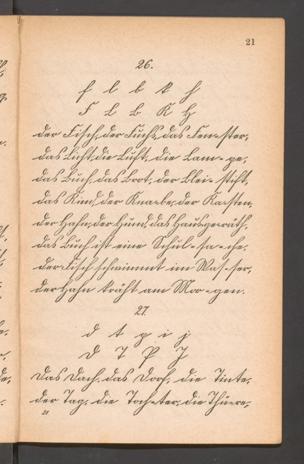 21
26.
f l b k h
F L B K H
der Fisch, der Fuchs, das Fen-ster,
das Licht, die Luft, die Lam-pe,
das Buch, das Brot, der Blei-stift,
das Kind, der Knabe, der Kasten,
der Hahn, der Hund, das Hausgerät,
das Buch ist eine Schul-sa-che,
der Fisch schwimmt im Was-ser,
der Hahn kräht am Mor-gen.
27.
d t p i j
D T P J
das Dach, das Dorf, die Tinte,
der Tag, die Tochter, die Thüre,
2*